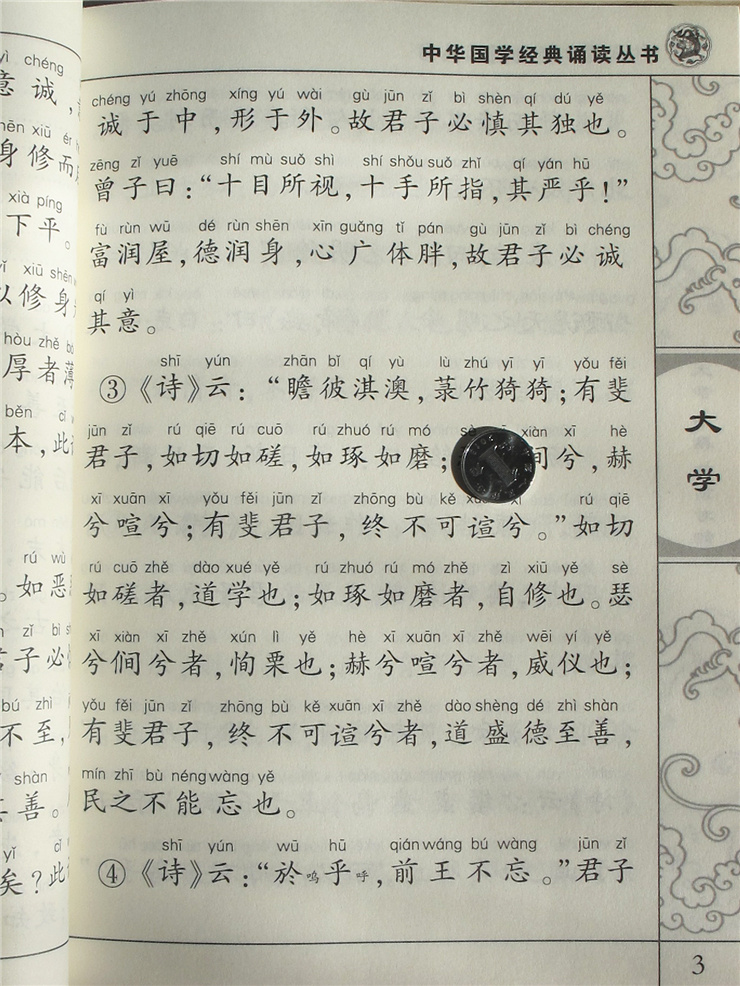 yì chéng
意诚，
xiū ér
身修而
xià píng
下平。
xiū shēn
以修身
hòu zhě
厚者薄
běn
本，此
rú wù
。如恶
zǐ bì
君子必
bú zhì
不至，
shàn
其善。
yǐ
矣？此
中华国学经典诵读丛书
chéng yú zhōng xíng yú wài gù jūn zǐ bì shèn qí dú yě
诚于中，形于外。故君子必慎其独也。
zēng zǐ yuē shí mù suǒ shì shí shǒu suǒ zhǐ qí yán hū
曾子曰：“十目所视，十手所指，其严乎！”
fù rùn wū dé rùn shēn xīn guǎng tǐ pán gù jūn zǐ bì chéng
富润屋，德润身，心广体胖，故君子必诚
qí yì
其意。
shī yún zhān bǐ qí yù lù zhú yī yī yǒu fěi
③《诗》云：“瞻彼淇澳，菉竹猗猗；有斐
jūn zǐ rú qiē rú cuō rú zhuó rú mó xiàn xī hè
君子，如切如磋，如琢如磨；兮，赫
xī xuān xī yǒu fěi jūn zǐ zhōng bù kě xī rú qiē
兮喧兮；有斐君子，终不可諠兮。”如切
rú cuō zhě dào xué yě rú zhuó rú mó zhě zì xiū yě sè
如磋者，道学也；如琢如磨者，自修也。瑟
xī xiàn xī zhě xún lì yě hè xī xuān xī zhě wēi yí yě
兮僩兮者，恂栗也；赫兮喧兮者，威仪也；
yǒu fěi jūn zǐ zhōng bù kě xuān xī zhě dào shèng dé zhì shàn
有斐君子，终不可諠兮者，道盛德至善，
mín zhī bù néng wàng yě
民之不能忘也。
shī yún wū hū qián wáng bú wàng jūn zǐ
④《诗》云：“於呜乎呼，前王不忘。”君子
大学
3